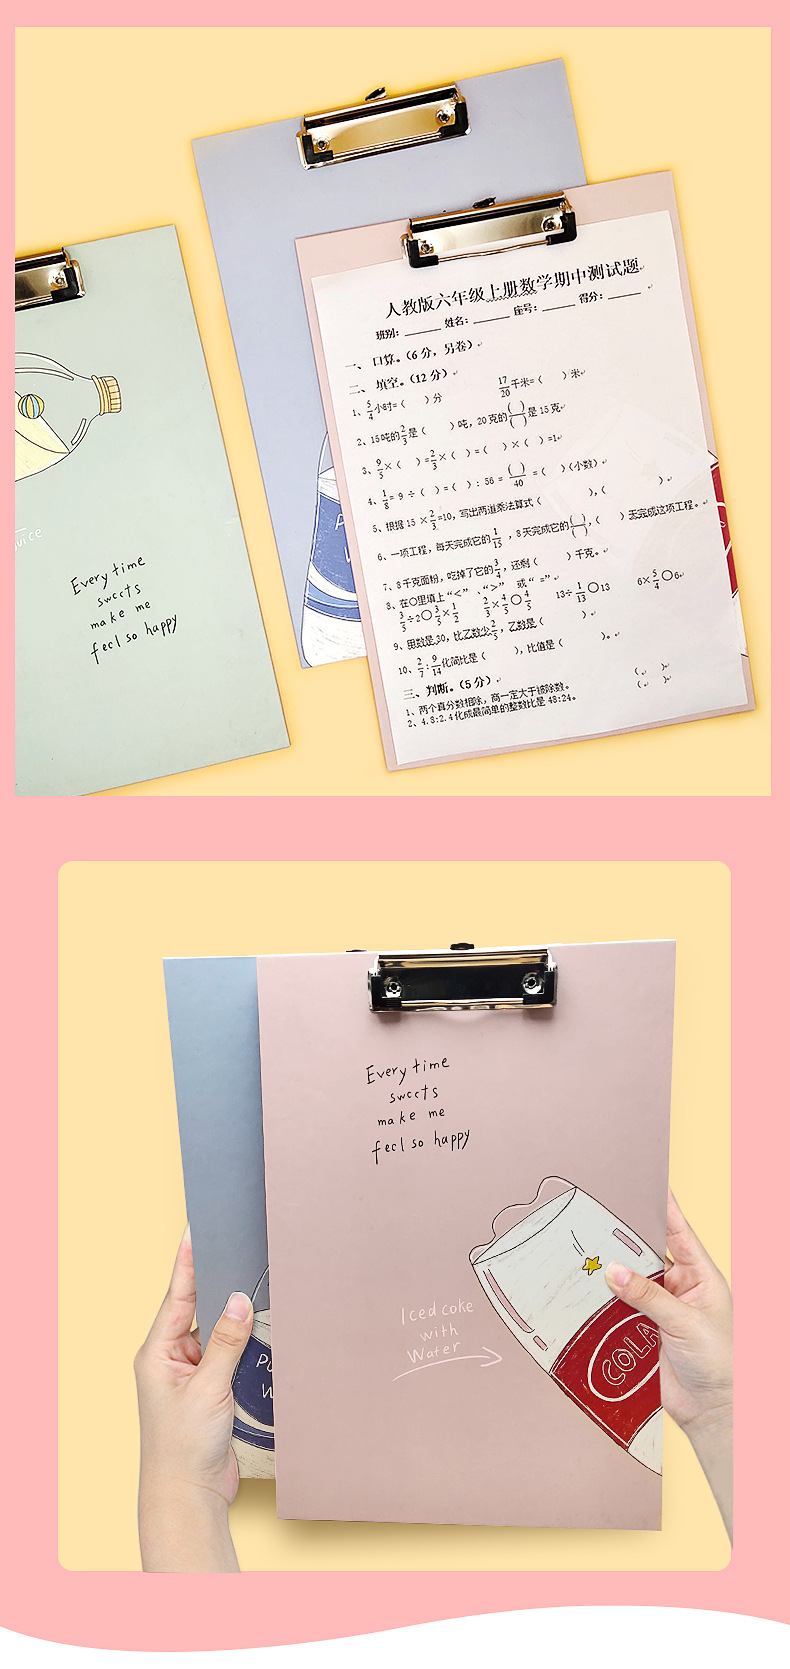 人教版六年级上册数学期中测试题
班别：______ 姓名：______ 座号：______ 得分：______
一、 口算。（6 分，另卷）
二、 填空。（12 分）
1、5/4小时=（ ）分 17/20千米=（ ）米
2、15吨的2/3是（ ）吨，20克的( )/( )是15克
3、9/5×（ ）=2/3×（ ）=（ ）×（ ）=1
4、1/8= 9 ÷（ ）=（ ）：56 = ( )/40 =（ ）（小数）
5、根据 15 ×2/3=10，写出两道乘法算式（ ），（ ）
6、一项工程，每天完成它的1/15，8天完成它的( )/( )，（ ）天完成这项工程。
7、8千克面粉，吃掉了它的3/4，还剩（ ）千克。
8、在〇里填上“＜”、“＞” 或“ =”
3/5÷2〇3/5×1/2 2/3×4/5〇4/5 13÷1/13〇13 6×5/4〇6
9、甲数是30，比乙数少2/5，乙数是（ ）
10、2/7:9/14化简比是（ ），比值是（ ）。
三、判断。（5 分）
1、两个真分数相除，商一定大于被除数。 （ ）
2、4.8:2.4化成最简单的整数比是 48:24。 （ ）
juice
Every time
sweets
make me
feel so happy
Every time
sweets
make me
feel so happy
Iced coke
with
Water
COLA